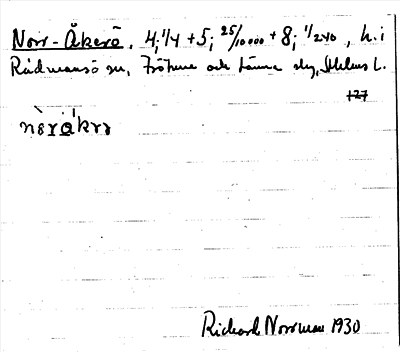 Norr-Åkerö, 4; 1/4 + 5; 25/10000 + 8; 1/240, h. i
Rådmansö sn, Frötuna och Länna skg, Sthlms L.
127
nòråkrə
Rickard Norrman 1930